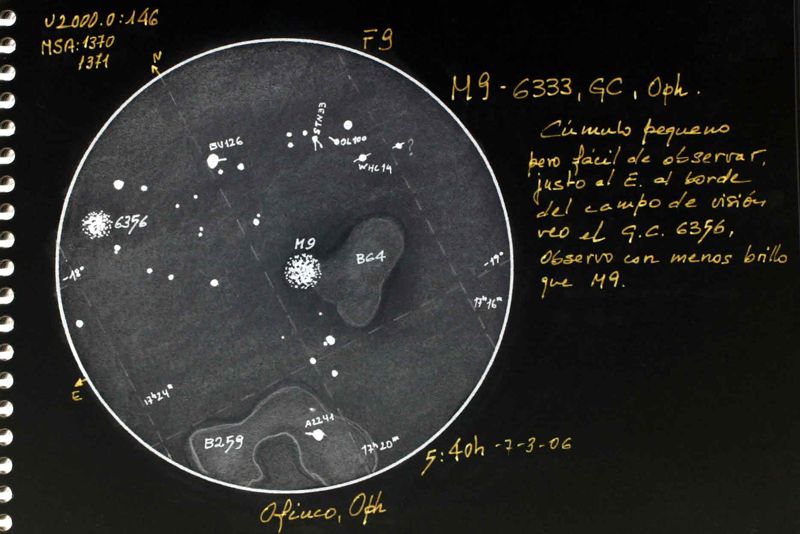 U2000.0:146
MSA:1370
1371
F9
N
M9-6333, GC, Oph.
Cúmulo pequeno
pero fácil de observar,
justo al E. al borde
del campo de visión
veo el G.C. 6356,
observo con menos brillo
que M9.
STN33
OL100
?
WHC14
BU126
6356
M9
B64
-18°
-19°
17h16m
E
17h24m
A2241
B259
17h20m
5:40h -7-3-06
Ofiuco, Oph